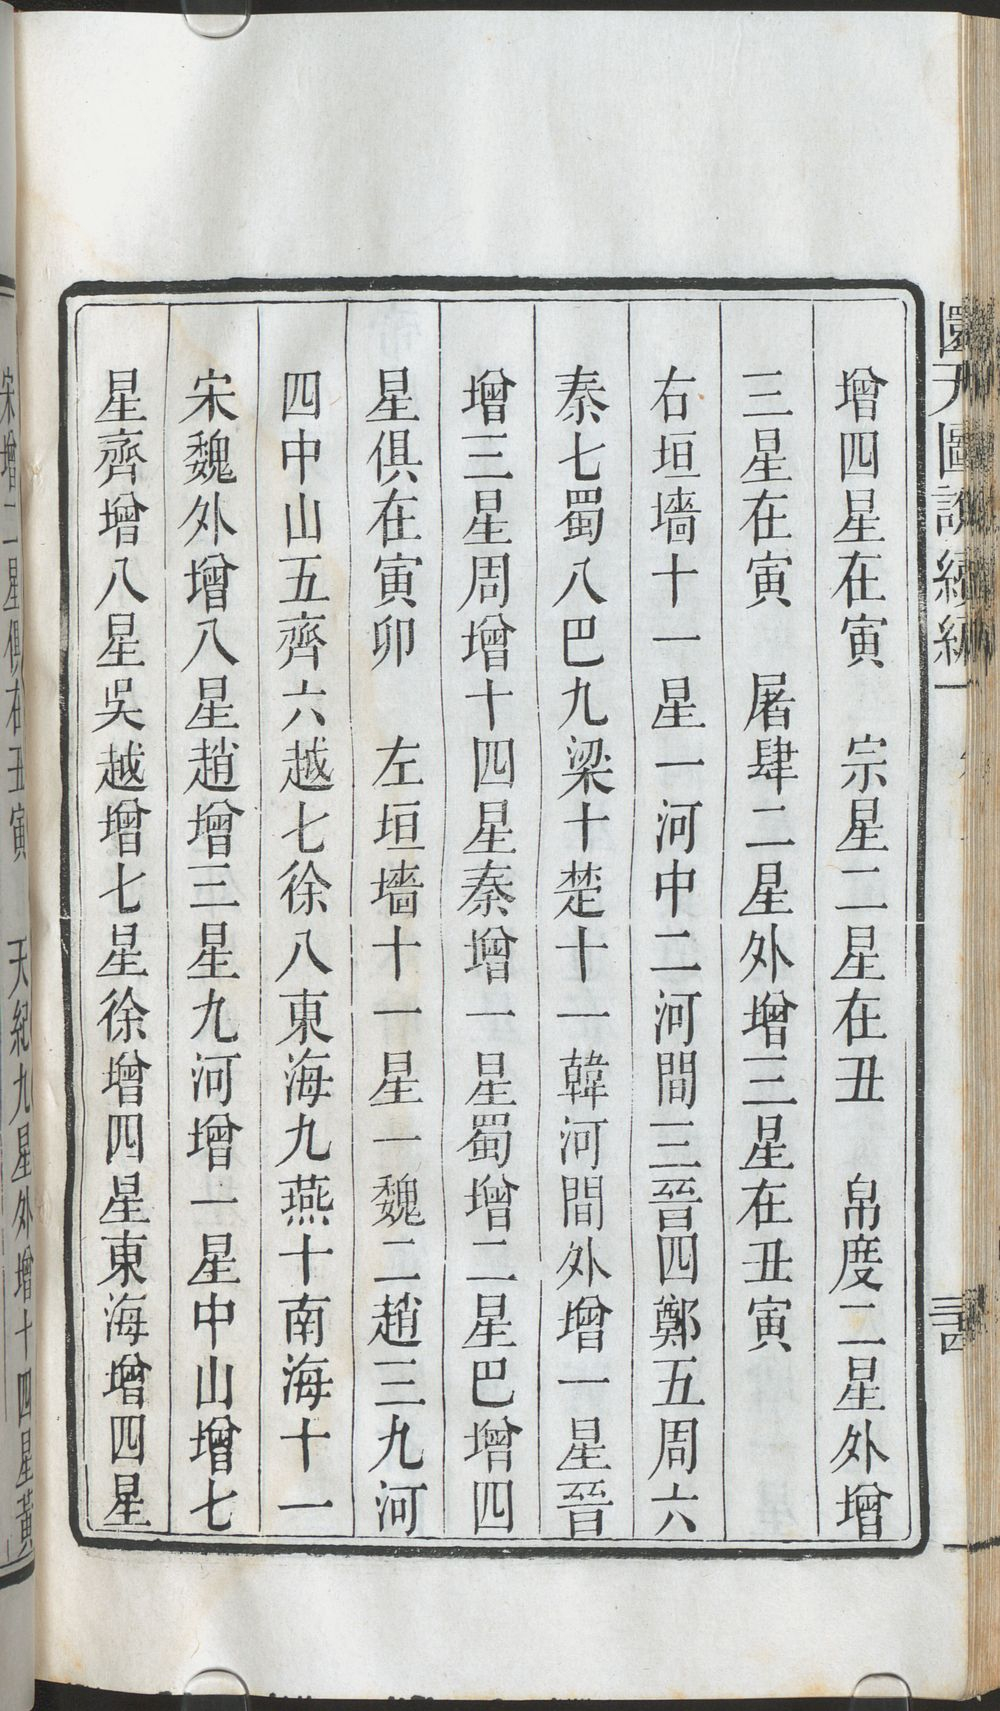 增四星在寅　宗星二星在丑　帛度二星外增
三星在寅　屠肆二星外增三星在丑寅
右垣墻十一星一河中二河間三晉四鄭五周六
秦七蜀八巴九梁十楚十一韓河間外增一星晉
增三星周增十四星秦增一星蜀增二星巴增四
星俱在寅卯　左垣墻十一星一魏二趙三九河
四中山五齊六越七徐八東海九燕十南海十一
宋魏外增八星趙增三星九河增一星中山增七
星齊增八星吳越增七星徐增四星東海增四星
宋增二星俱在丑寅　天紀九星外增十四星黃